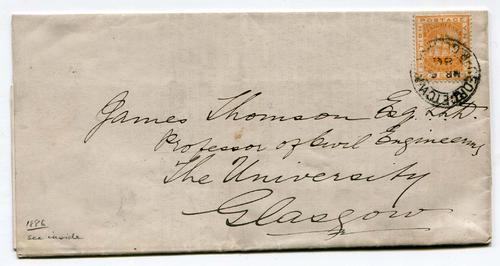 POSTAGE
GEORGETOWN
MR
James Thomson Esq. LL.D.
Professor of Civil Engineering
The University
Glasgow
1886
see inside